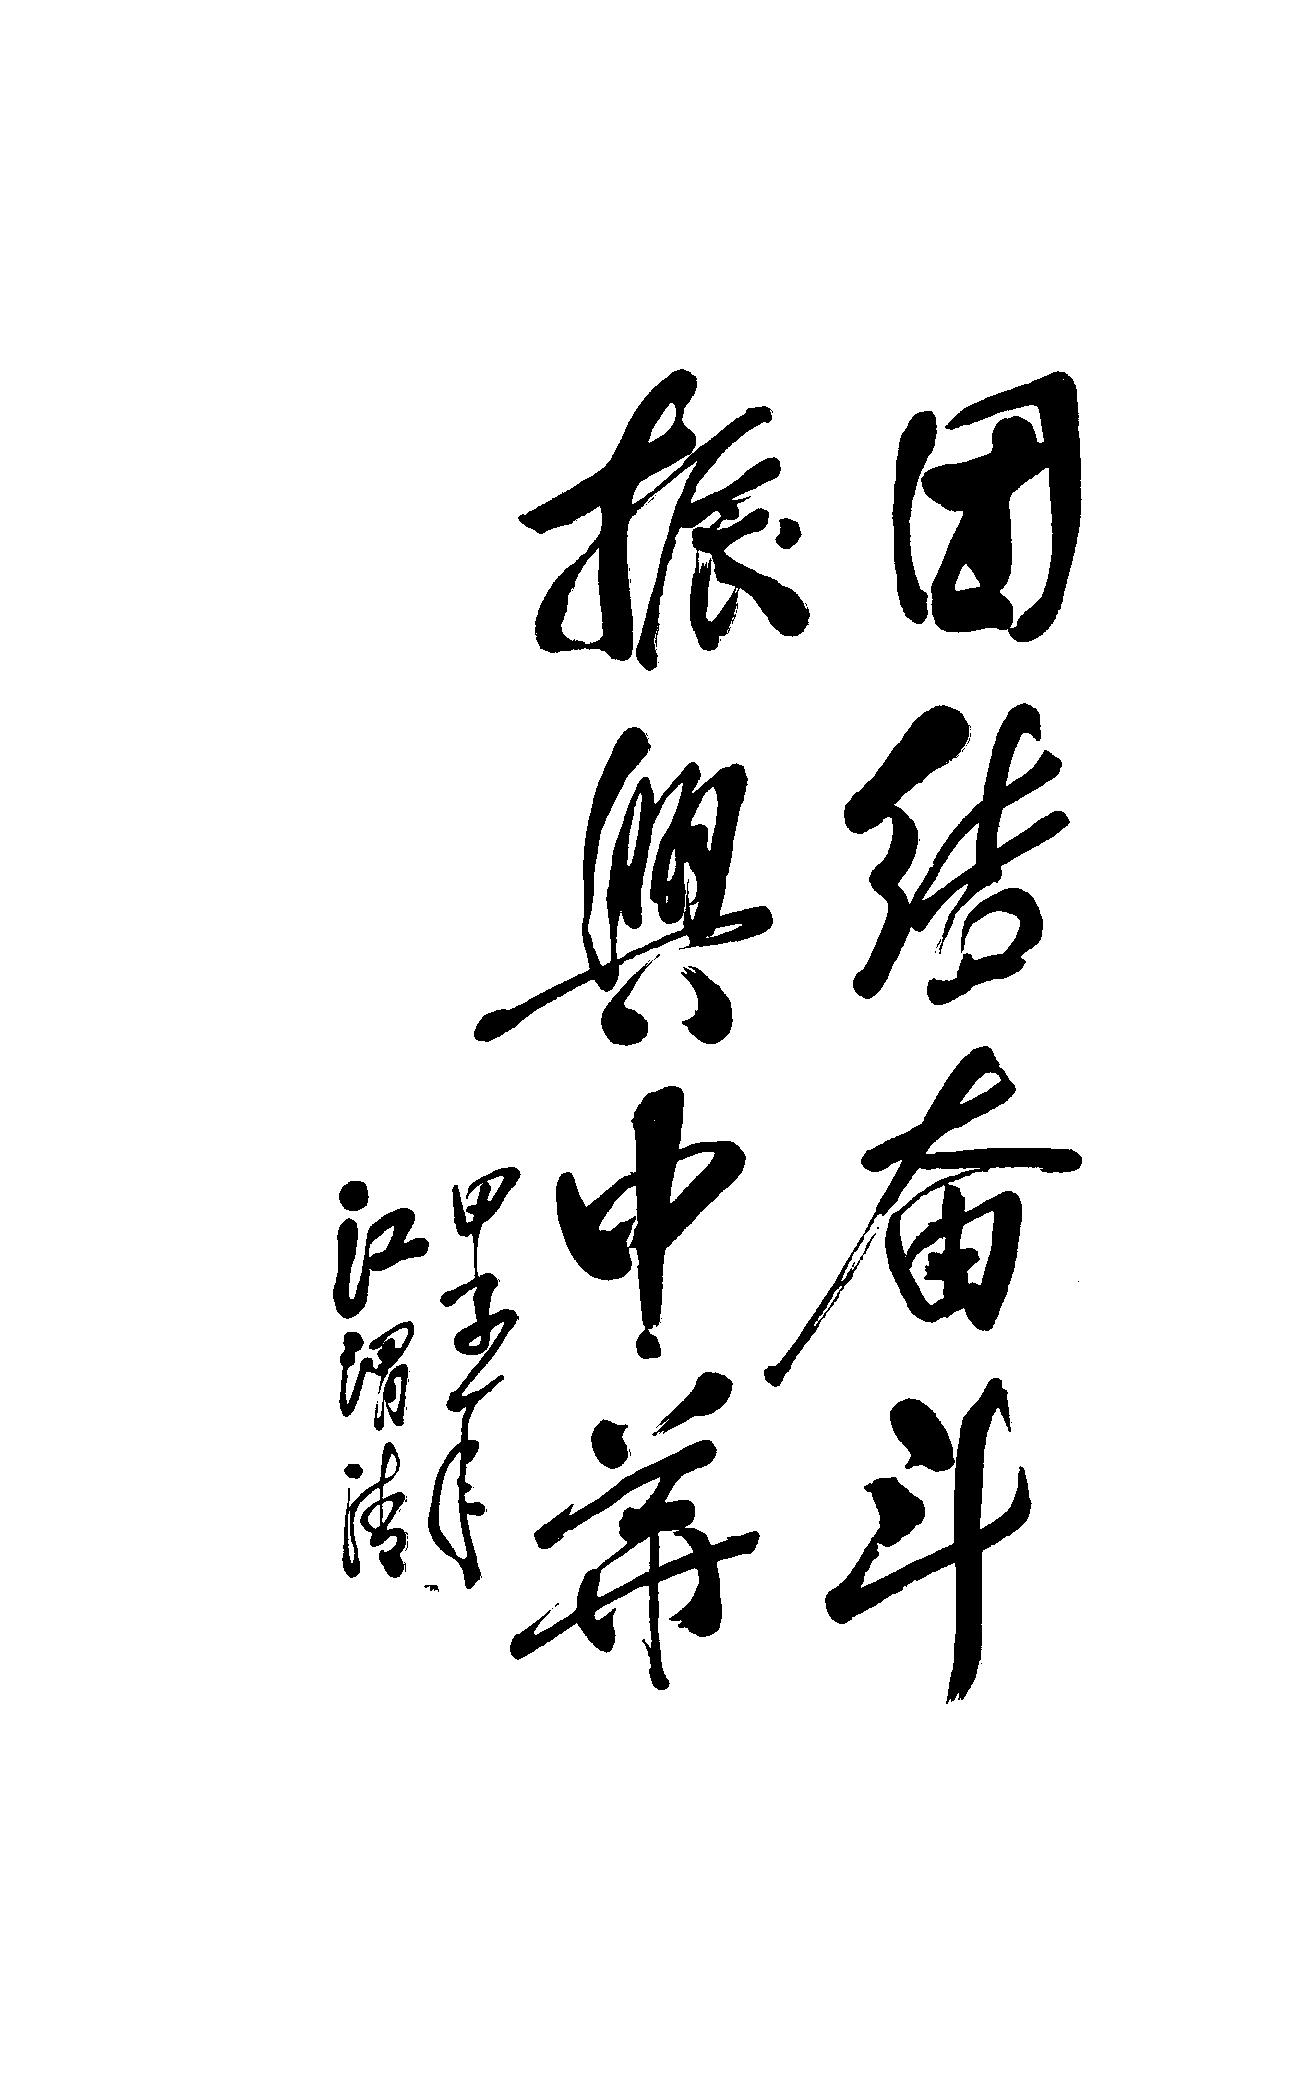 团结奋斗
振興中華
甲子年
江渭清